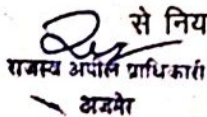 से निय
राजस्व अपील प्राधिकारी
अजमेर